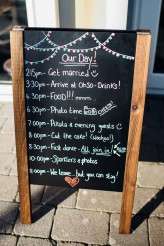 Our Day!
2:15pm - Get married
3:30pm - Arrive at Ohso - Drinks!
4:30pm - FOOD!!!
5:30pm - Photo time
7:00pm - & evening guests
8:00pm - Cut the cake! (Woohoo!)
8:30pm - First dance. All join in!
10:00pm - Sparklers & photos
11:00pm - We leave.. but you can stay!